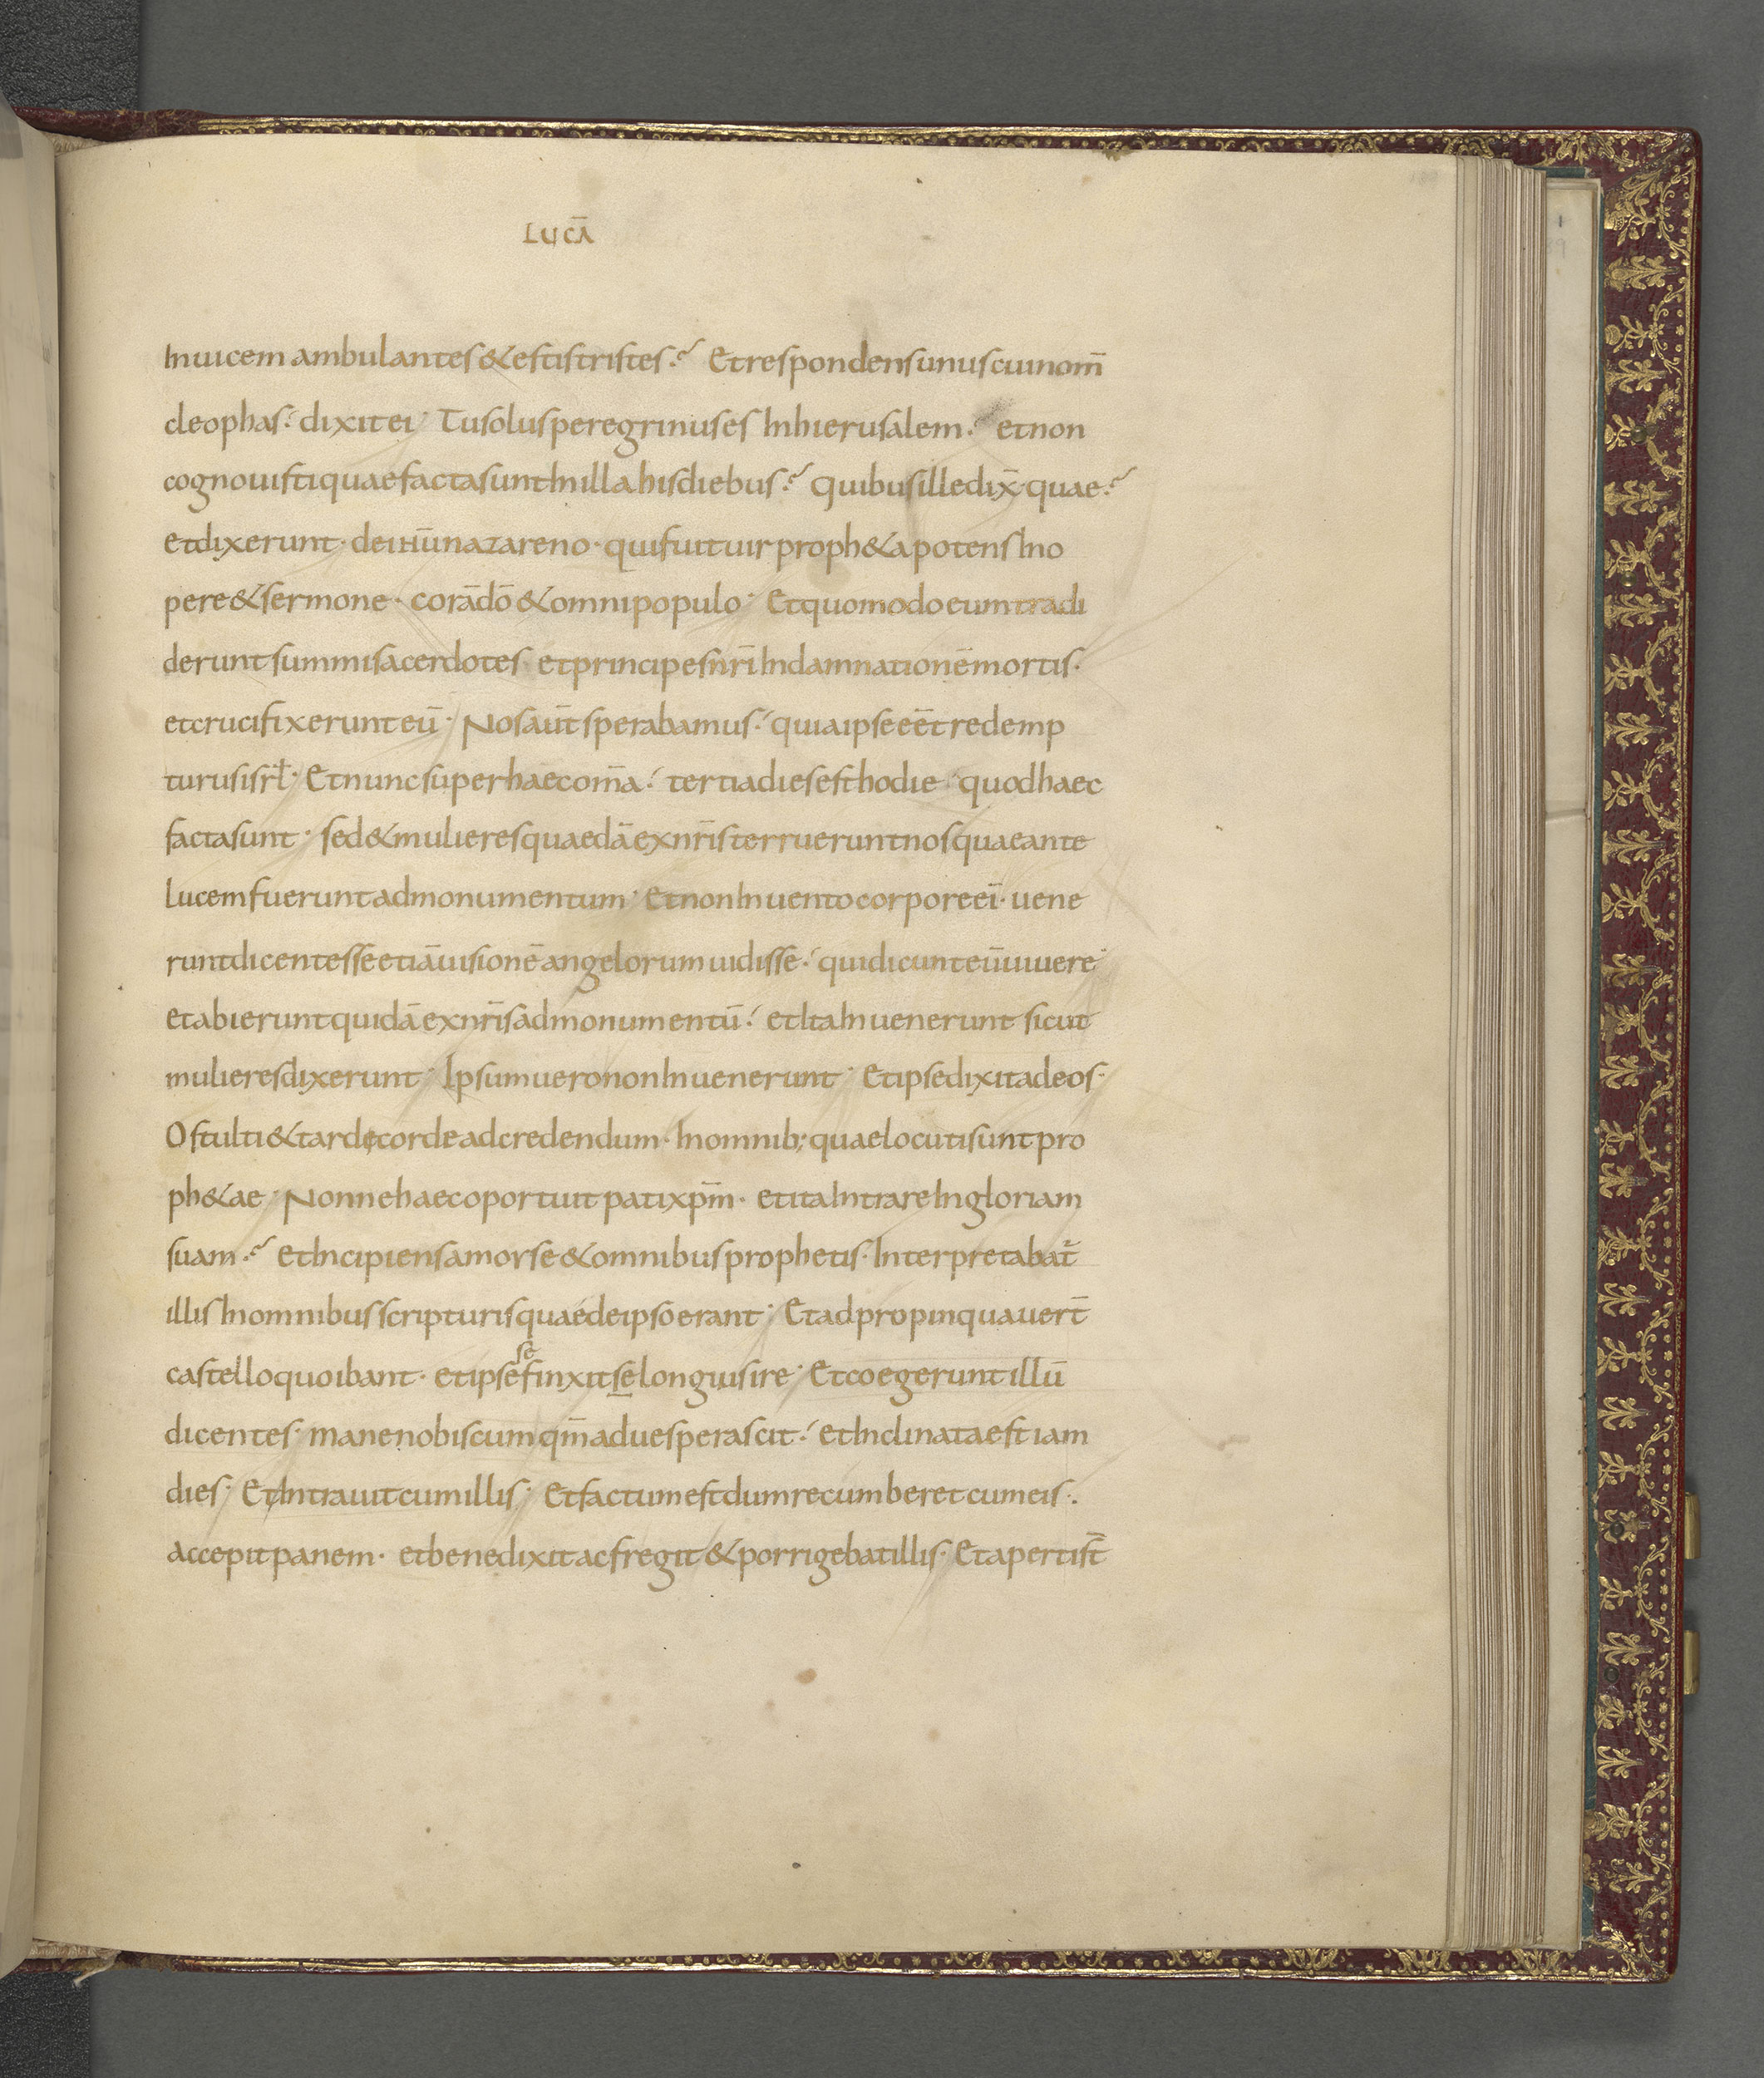 LUCĀ
Inuicem ambulantes & estis tristes? Et respondens unus cui nom̄
cleophas. dixit ei· Tu solus peregrinus es In hierusalem? et non
cognouisti quae facta sunt In illa his diebus? Quibus ille dix̄· quae?
et dixerunt· de iHū nazareno· qui fuit uir proph&a potens In o
pere & sermone· corā dō & omni populo· Et quomodo eum tradi
derunt summi sacerdotes· et principes nr̄i In damnationē mortis·
et crucifixerunt eū· Nos aūt sperabamus· quia ipse eēt redemp
turus isrł· Et nunc super haec om̄a· tertia dies est hodie· quod haec
facta sunt· sed & mulieres quaedā ex nr̄is terruerunt nos quae ante
lucem fuerunt ad monumentum· et non Inuento corpore ei̅· uene
runt dicentes sē etiā uisionē angelorum uidisse· qui dicunt eū uiuere·
et abierunt quidā ex nr̄is ad monumentū· et Ita Inuenerunt sicut
mulieres dixerunt· Ipsum uero non Inuenerunt· Et ipse dixit ad eos·
O stulti & tardę corde ad credendum· In omnib; quae locuti sunt pro
ph&ae· Nonne haec oportuit pati xp̄m· et ita Intrare In gloriam
suam? et Incipiens a morse & omnibus prophetis· Interpretabat̄
illis In omnibus scripturis quae de ipso erant· Et adpropinquauer̄t
castello quo ibant· et ipse se finxit se longius ire· Et coegerunt illū
dicentes· mane nobiscum qm̄ aduesperascit· et Inclinata est iam
dies· Et Intrauit cum illis· Et factum est dum recumberet cum eis·.
accepit panem· et benedixit ac fregit & porrigebat illis· Et aperti st̄